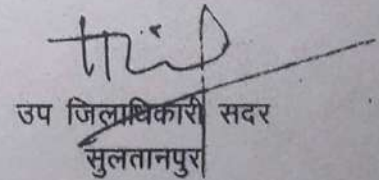 उप जिलाधिकारी सदर
सुलतानपुर